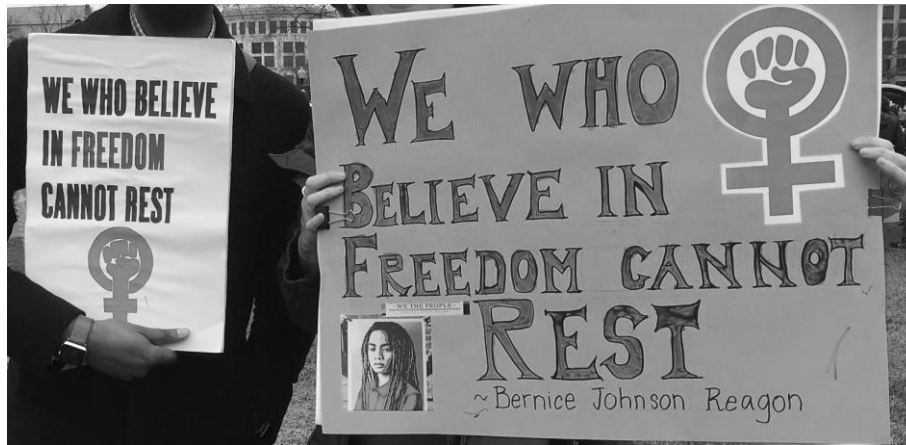 WE WHO BELIEVE
IN FREEDOM
CANNOT REST
WE WHO
BELIEVE IN
FREEDOM CANNOT
REST
- WE THE PEOPLE -
~ Bernice Johnson Reagon